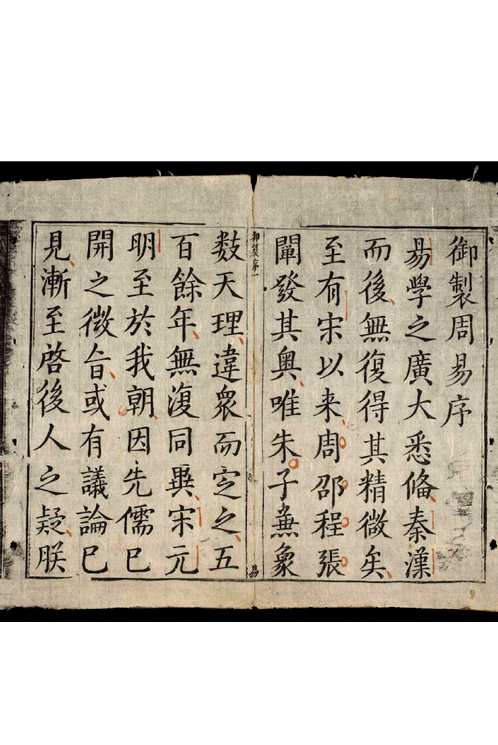 御製周易序
易學之廣大悉偹秦漢
而後無復得其精微矣
至有宋以来周邵程張
闡發其奥唯朱子兼象
數天理違衆而定之五
百餘年無復同異宋元
明至於我朝因先儒已
開之微旨或有議論已
見漸至啓後人之疑朕